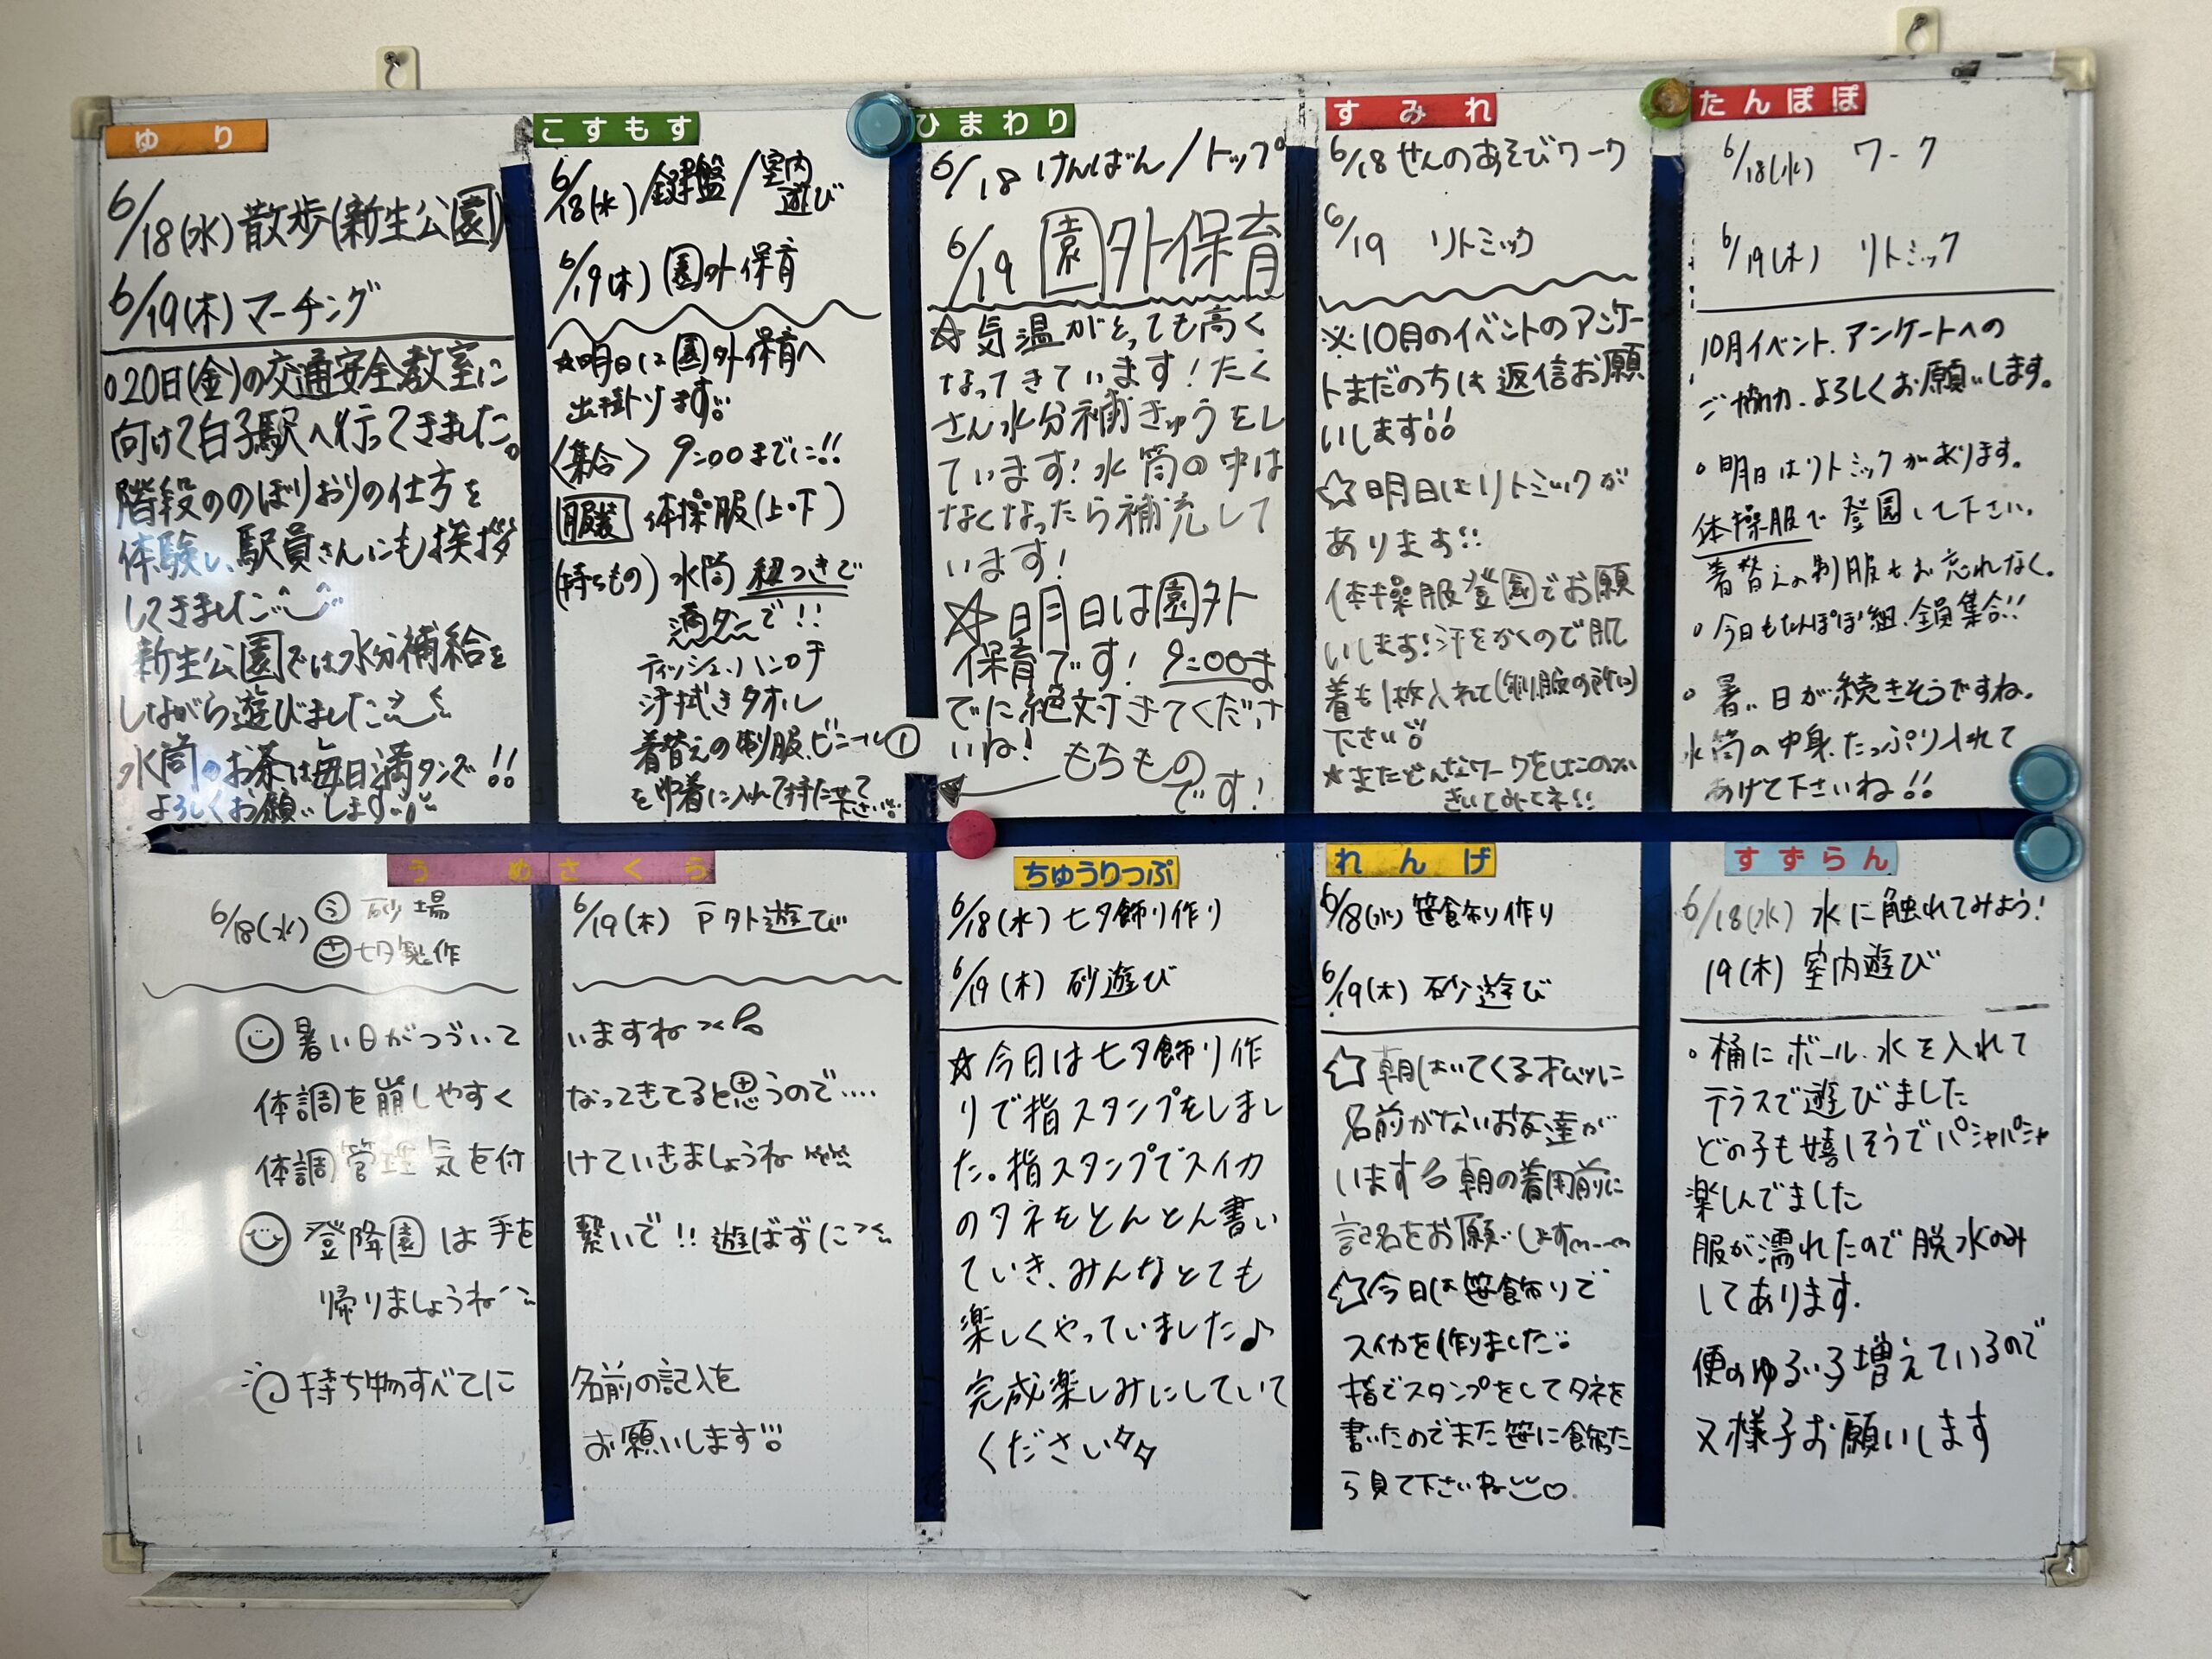 ゆり
6/18(水)散歩(新生公園)
6/19(木)マーチング
○20日(金)の交通安全教室に
向けて白子駅へ行ってきました。
階段ののぼりおりの仕方を
体験し、駅員さんにも挨拶
してきました
新生公園では水分補給を
しながら遊びました
水筒のお茶は毎日満タンで!!
よろしくお願いします
こすもす
6/18(水)/鍵盤/室内遊び
6/19(木)園外保育
★明日は園外保育へ
出掛けます!!
〈集合〉9:00までに!!
服装 体操服(上・下)
(持ちもの)水筒 紐つきで
満タンで!!
ティッシュ、ハンカチ
汗拭きタオル
着替えの制服、ビニール①
を巾着に入れて持たせて
下さい!!
ひまわり
6/18 けんばん/トップ
6/19 園外保育
☆気温がとっても高く
なってきています!たく
さん水分補きゅうをし
ています!水筒の中は
なくなったら補充して
います!
☆明日は園外
保育です!9:00ま
でに絶対きてくださ
いね!
もちもの
です!
すみれ
6/18 せんのあそびワーク
6/19 リトミック
※10月のイベントのアンケー
トまだの方は返信お願
いします!!
☆明日はリトミックが
あります!!
体操服登園でお願
いします!汗をかくので肌
着も1枚入れて(制服の所に)
下さい!!
★またどんなワークをしたのか
きいてみてネ!!
たんぽぽ
6/18(水) ワーク
6/19(木) リトミック
10月イベント、アンケートへの
ご協力、よろしくお願いします。
○明日はリトミックがあります。
体操服で登園して下さい。
着替えの制服もお忘れなく。
○今日もたんぽぽ組、全員集合!!
○暑い日が続きそうですね。
水筒の中身、たっぷり入れて
あげて下さいね!!
うめさくら
6/18(水) う 砂場
さ 七夕製作
6/19(木) 戸外遊び
暑い日がつづいていますね
体調を崩しやすくなってきてると思うので‥‥
体調管理気を付けていきましょうね
登降園は手を繋いで!!遊ばずに
帰りましょうね
持ち物すべてに名前の記入を
お願いします!!
ちゅうりっぷ
6/18(水) 七夕飾り作り
6/19(木) 砂遊び
☆今日は七夕飾り作
りで指スタンプをしまし
た。指スタンプでスイカ
のタネをとんとん書い
ていき、みんなとても
楽しくやっていました♪
完成楽しみにしていて
ください
れんげ
6/18(水) 笹飾り作り
6/19(木) 砂遊び
☆朝はいてくるオムツに
名前がないお友達が
います 朝の着用前に
記名をお願いします
☆今日は笹飾りで
スイカを作りました
指でスタンプをしてタネを
書いたのでまた笹に飾った
ら見て下さいね♡
すずらん
6/18(水) 水に触れてみよう!
19(木) 室内遊び
○桶にボール、水を入れて
テラスで遊びました
どの子も嬉しそうでパシャパシャ
楽しんでました
服が濡れたので脱水のみ
してあります.
便のゆるい子増えているので
又様子お願いします